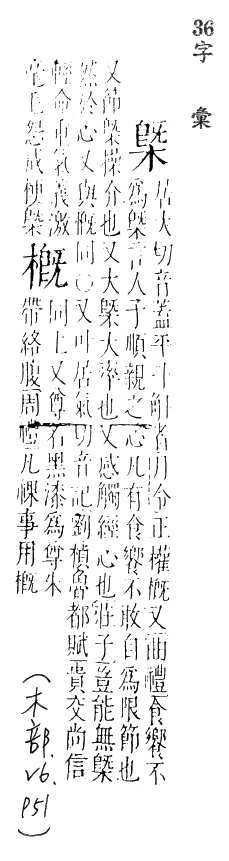 36字 彙
槩
居大切音蓋平斗斛者月令正權槪又曲禮食饗不
爲槩言人子順親之心凡有食饗不敢自爲限節也
又節槩操介也又大槩大率也又感觸經心也莊子豈能無槩
然於心又與慨同○又叶居氣切音記劉楨魯都賦貴交尚信
輕命重氣義激
毫毛怨成梗槩
槪
同上又尊名黑漆爲尊朱
帶絡腹周禮凡祼事用槪
(木部.V6. P51)